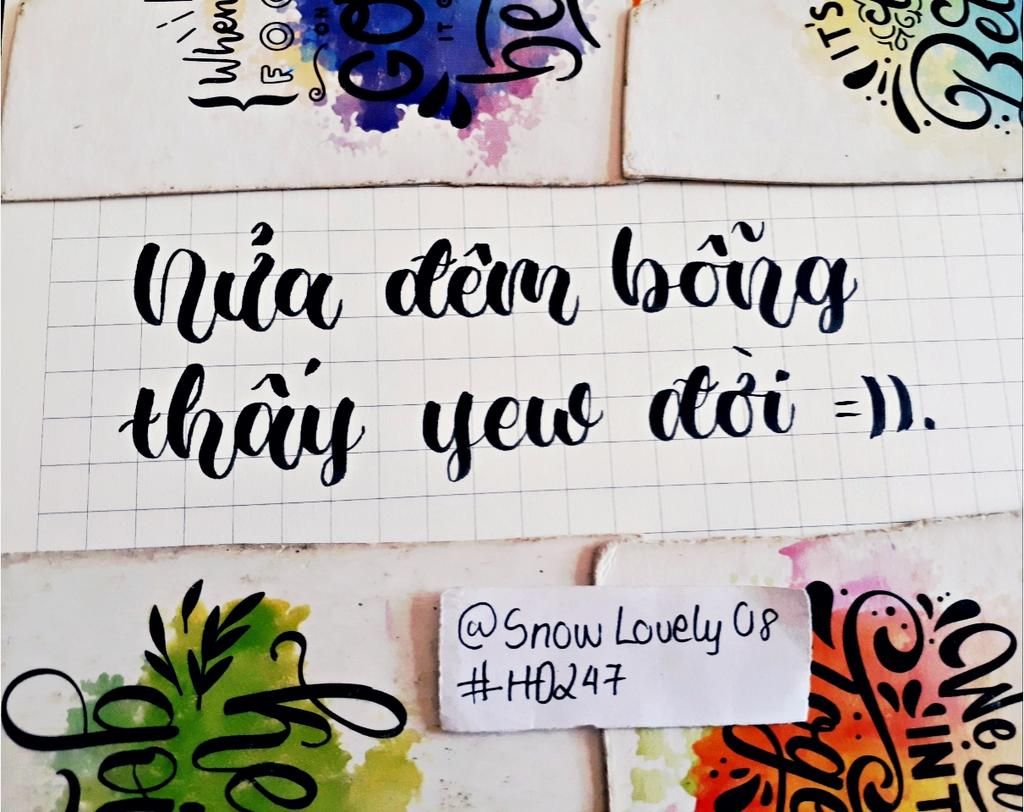 When
FOC
ON
GO
IT
be
IT'S
Be
Nửa đêm bỗng
thấy yew đời =)).
@Snow Lovely 08
#HD247
We
IN